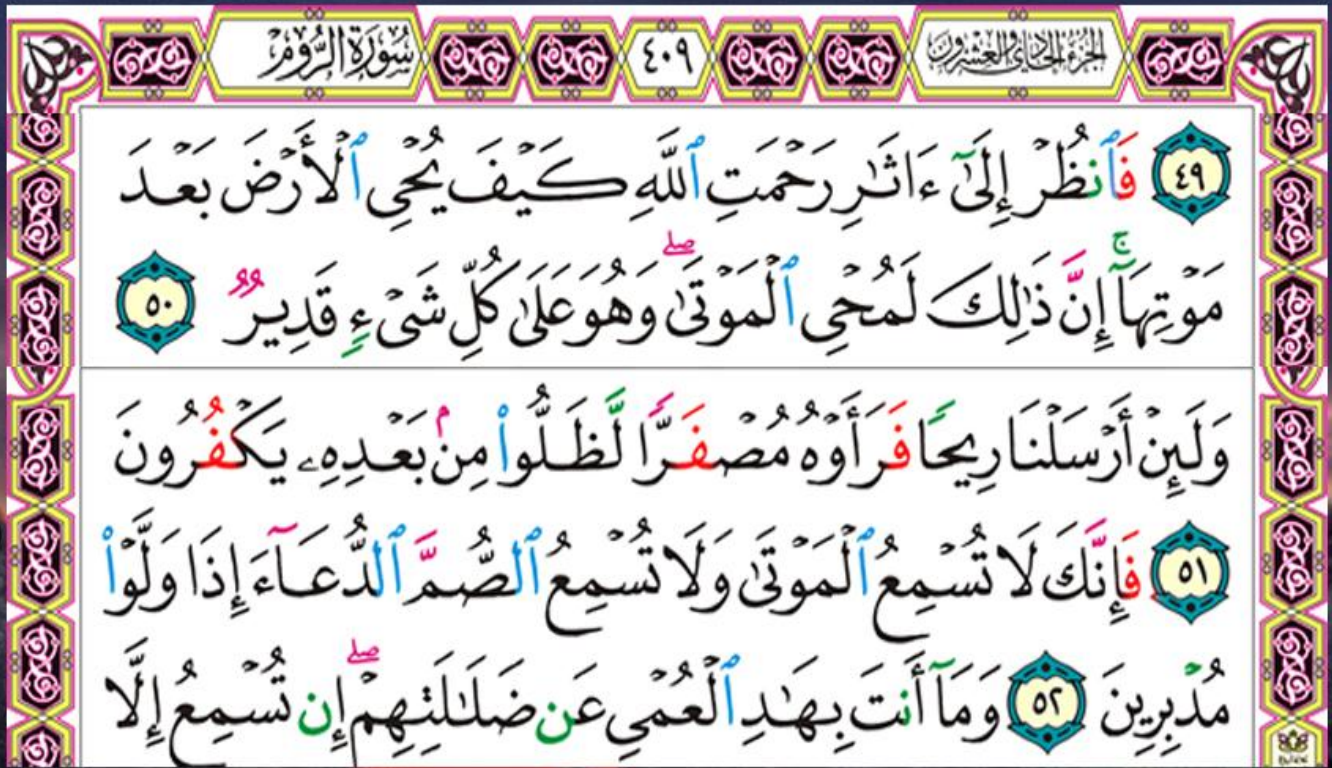 الجزء الحادي والعشرون ٤٠٩ سُورَةُ الرُّومِ
٤٩ فَٱنظُرْ إِلَىٰٓ ءَاثَٰرِ رَحْمَتِ ٱللَّهِ كَيْفَ يُحْىِ ٱلْأَرْضَ بَعْدَ
مَوْتِهَآ ۚ إِنَّ ذَٰلِكَ لَمُحْىِ ٱلْمَوْتَىٰ ۖ وَهُوَ عَلَىٰ كُلِّ شَىْءٍ قَدِيرٌ ٥٠
وَلَئِنْ أَرْسَلْنَا رِيحًا فَرَأَوْهُ مُصْفَرًّا لَّظَلُّوا۟ مِنۢ بَعْدِهِۦ يَكْفُرُونَ
٥١ فَإِنَّكَ لَا تُسْمِعُ ٱلْمَوْتَىٰ وَلَا تُسْمِعُ ٱلصُّمَّ ٱلدُّعَآءَ إِذَا وَلَّوْا۟
مُدْبِرِينَ ٥٢ وَمَآ أَنتَ بِهَٰدِ ٱلْعُمْىِ عَن ضَلَٰلَتِهِمْ ۖ إِن تُسْمِعُ إِلَّا